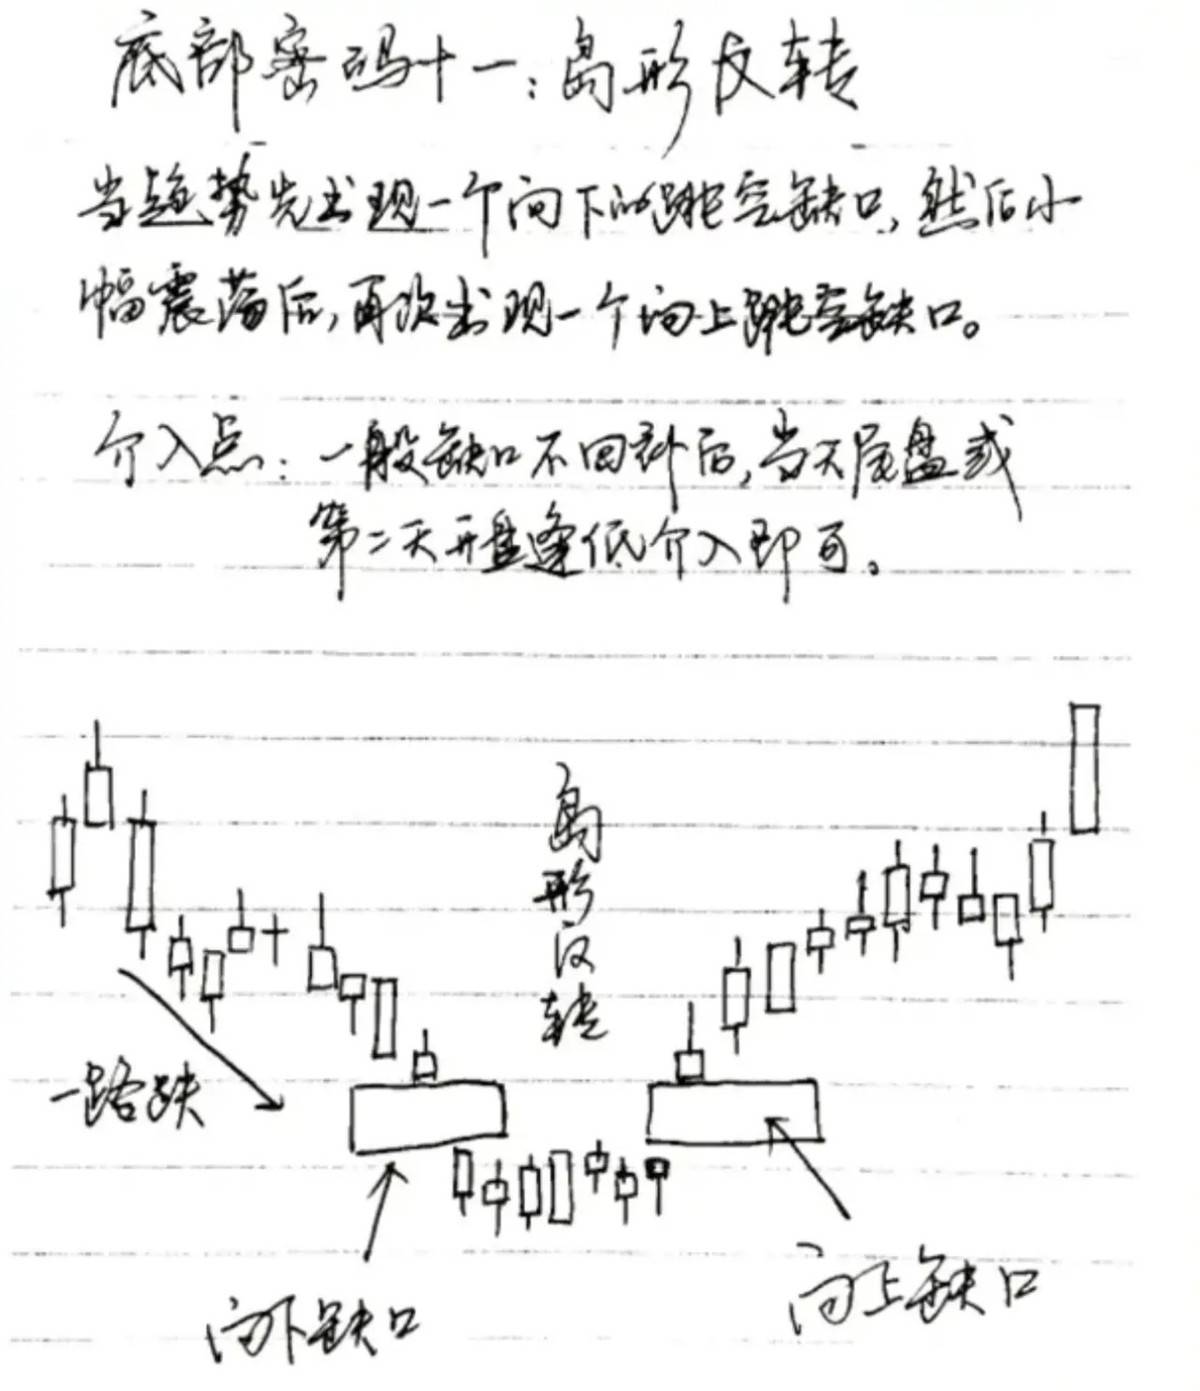 底部密码十一:岛形反转
当趋势先出现一个向下的跳空缺口,然后小
幅震荡后,再次出现一个向上跳空缺口。
介入点:一般缺口不回补后,当天尾盘或
第二天开盘逢低介入即可。
岛形反转
一路跌
向下缺口
向上缺口